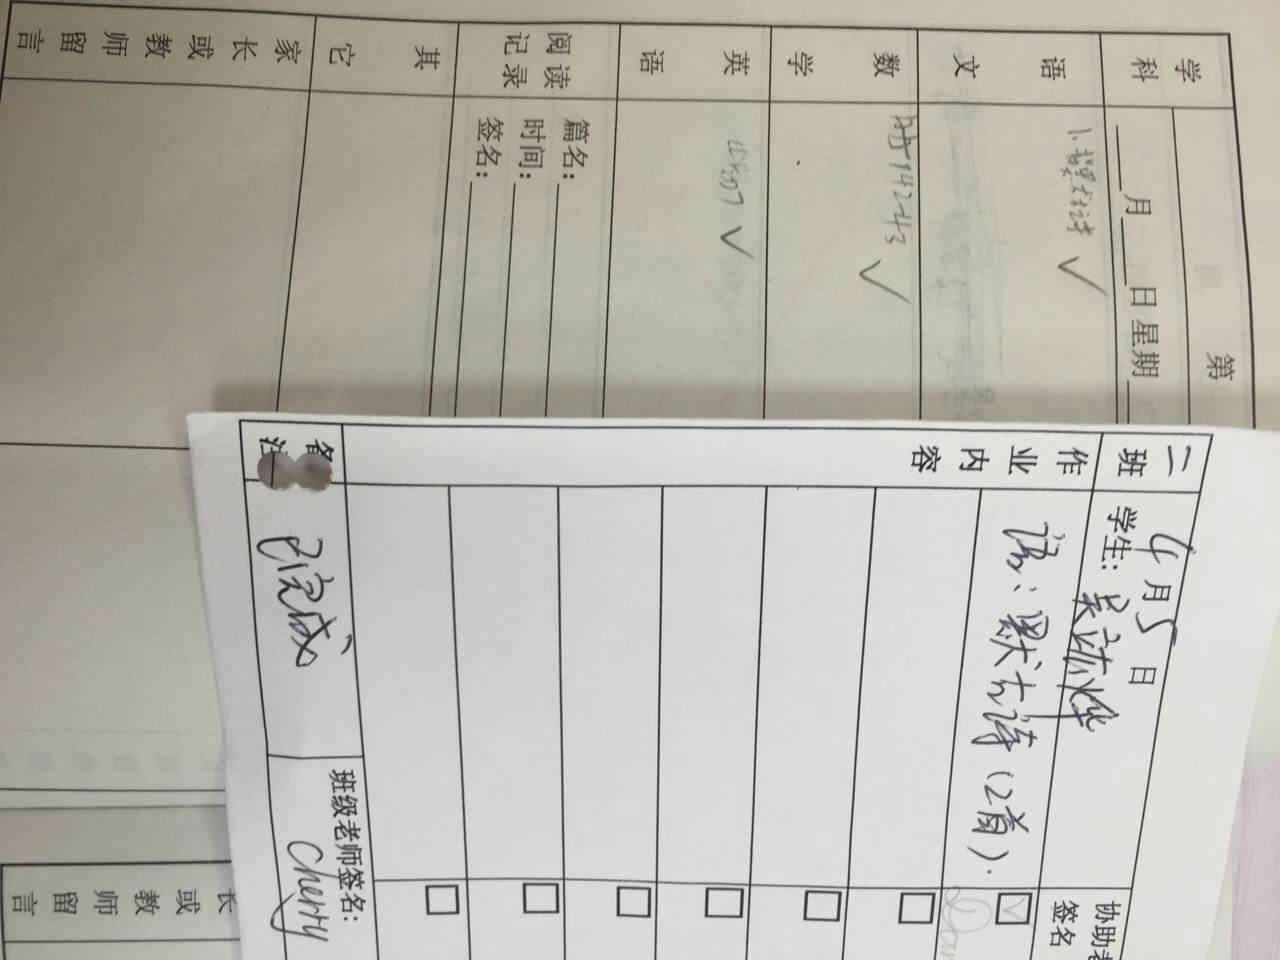 第
学科
月 日 星期
语文
1、默古诗
数学
P42-43
英语
阅读记录
篇名:
时间:
签名:
其它
家长或教师留言
二班
4月5日
学生:
作业内容
语:默古诗(2首).
协助老
签名
备注
已完成
班级老师签名:
Cherry
长或教师留言